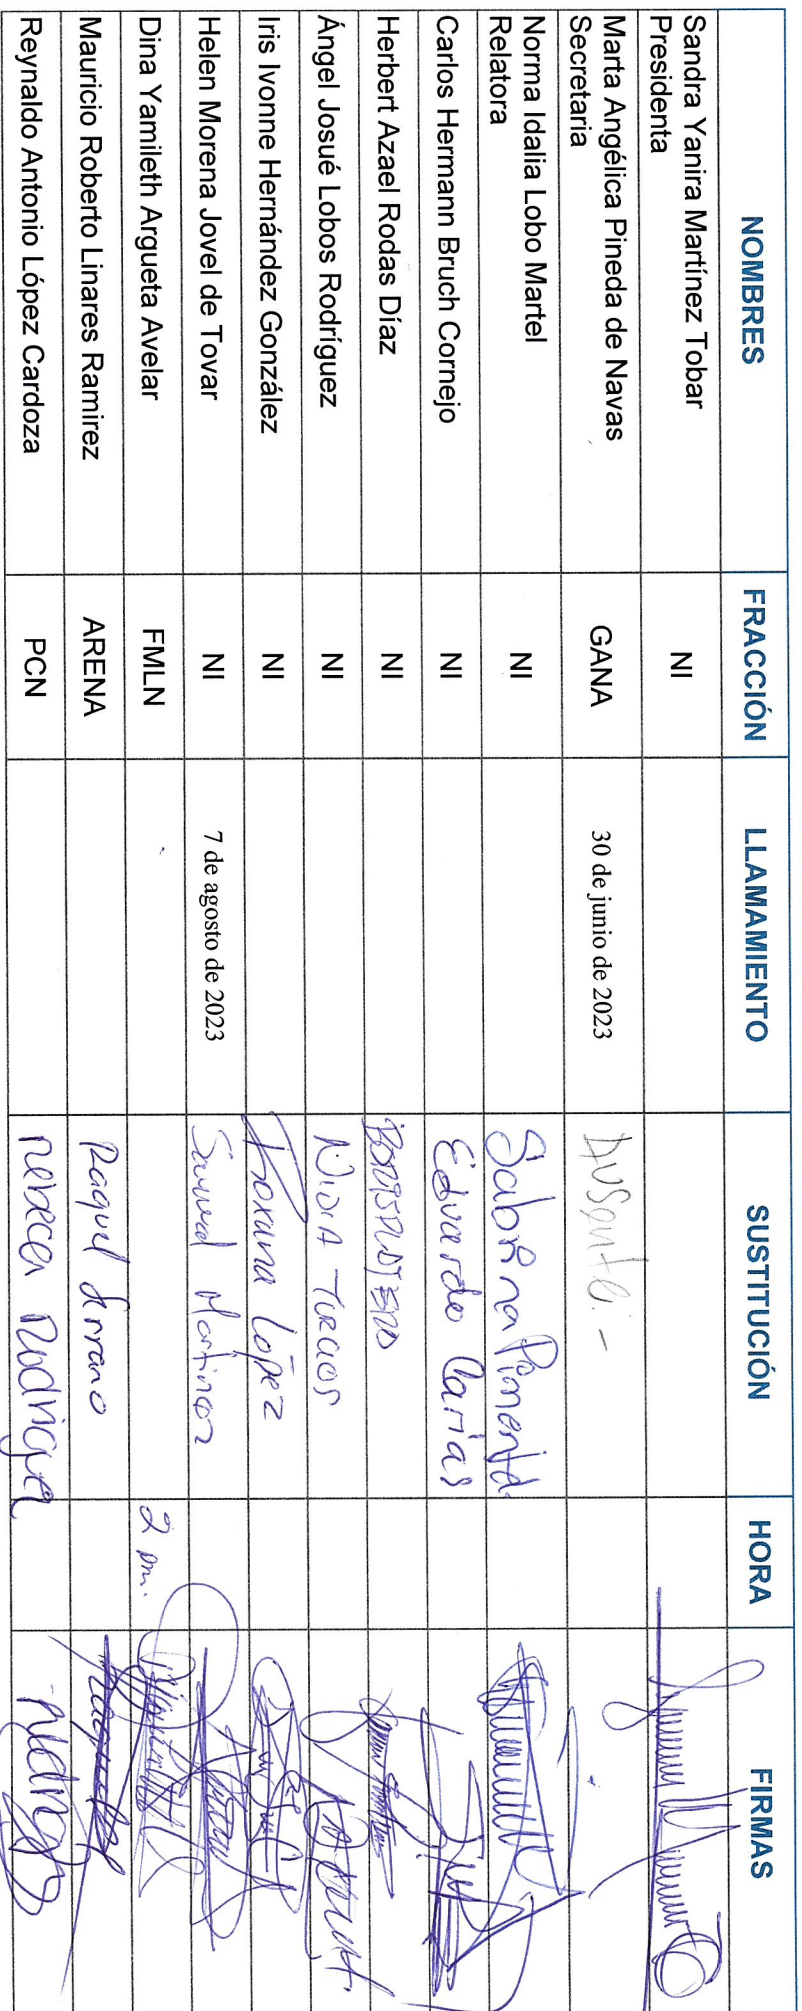 NOMBRES FRACCIÓN LLAMAMIENTO SUSTITUCIÓN HORA FIRMAS
Sandra Yanira Martínez Tobar
Presidenta NI
Marta Angélica Pineda de Navas
Secretaria GANA 30 de junio de 2023 Ausente. -
Norma Idalia Lobo Martel
Relatora NI Sabrina Pimentel
Carlos Hermann Bruch Cornejo NI Eduardo Carias
Herbert Azael Rodas Díaz NI
Ángel Josué Lobos Rodríguez NI Nidia Turcios
Iris Ivonne Hernández González NI Roxana López
Helen Morena Jovel de Tovar NI 7 de agosto de 2023 Samuel Martínez
Dina Yamileth Argueta Avelar FMLN 2 pm.
Mauricio Roberto Linares Ramirez ARENA Raquel Serrano
Reynaldo Antonio López Cardoza PCN rebeca Rodriguez